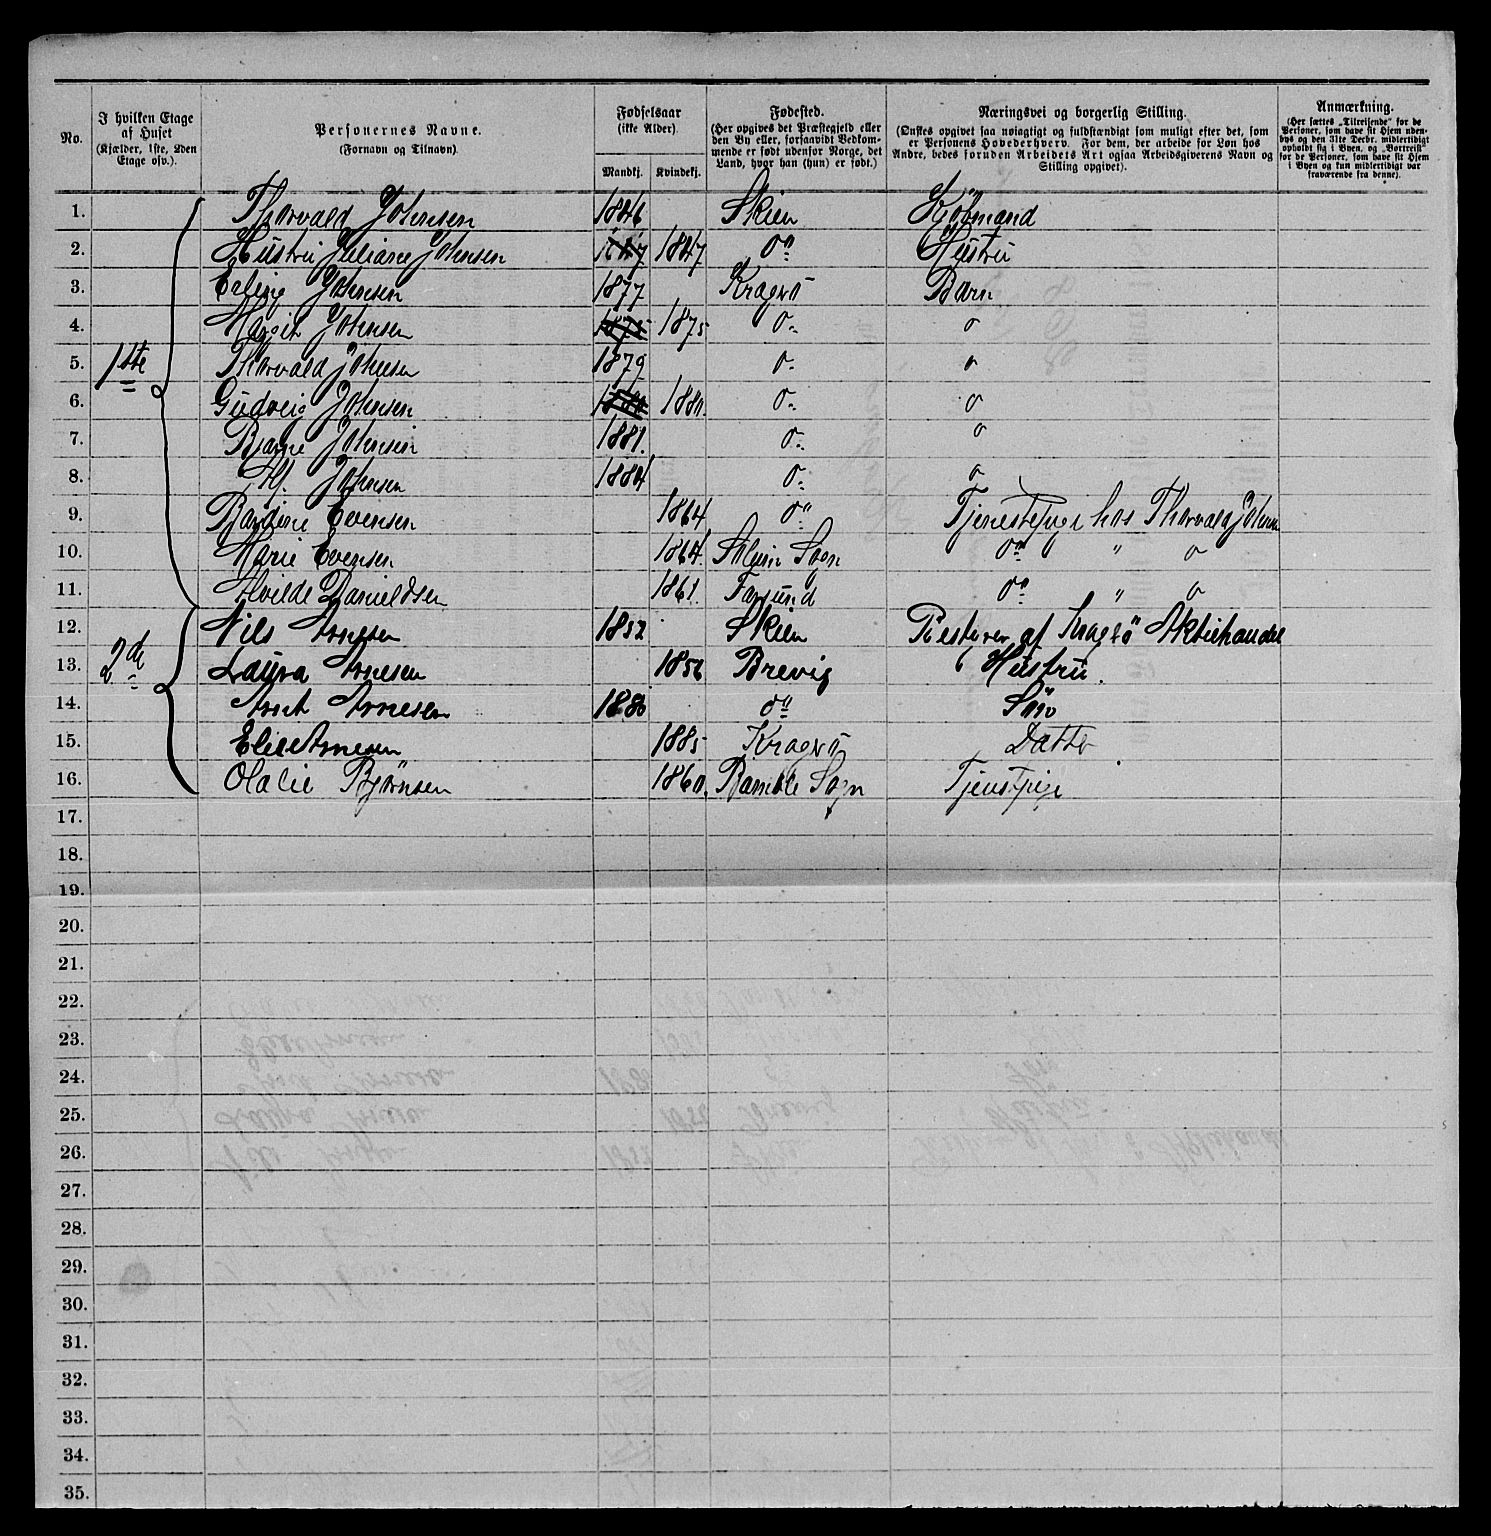 No.
I hvilken Etage af Huset (Kjælder, 1ste, 2den Etage osv.).
Personernes Navne. (Fornavn og Tilnavn).
Fødselsaar (ikke Alder)
Mandkj. Kvindekj.
Fødested. (Her opgives det Præstegjeld eller den By eller, forsaavidt Vedkommende er født udenfor Norge, det Land, hvor han (hun) er født.)
Næringsvei og borgerlig Stilling. (Ønskes opgivet saa nøiagtigt og fuldstændigt som muligt efter det, som er Personens Hovederhverv. For dem, der arbeide for Løn hos Andre, bedes foruden Arbeidets Art ogsaa Arbeidsgiverens Navn og Stilling opgivet).
Anmærkning. (Her sættes „Tilreisende“ for de Personer, som have sit Hjem udenbys og den 31te Decbr. midlertidigt opholdt sig i Byen, og „Bortreist“ for de Personer, som have sit Hjem i Byen og kun midlertidigt var fraværende fra denne).
1. Thorvald Johnsen 1846 Skien Kjömand
2. Hustru Juliane Johnsen 1847 1847 do Hustru
3. Erling Johnsen 1877 Kragerö Barn
4. Margit Johnsen 1875 1875 o o
1ste
5. Thorvald Johnsen 1879 o o
6. Gudveig Johnsen 1880 1880. o o
7. Bjarne Johnsen 1881. o o
8. Alf Johnsen 1884 o o
9. Bardine Evensen 1864 do Tjenestepige hos Thorvald Johnsen
10. Marie Evensen 1864. Solum Sogn do " o
11. Alvilde Danieldsen 1861. Farsund do " o
12. Nils Arnesen 1852 Skien Bestyrer af Kragerö Aktiehandel
2de
13. Laura Arnesen 1856 Brevig Hustru.
14. Arnt Arnesen 1880 do Sön
15. Elise Arnesen 1885 Kragerö Datter
16. Olalie Bjørnsen 1860. Bamble Sogn Tjenstpige
17.
18.
19.
20.
21.
22.
23.
24.
25.
26.
27.
28.
29.
30.
31.
32.
33.
34.
35.